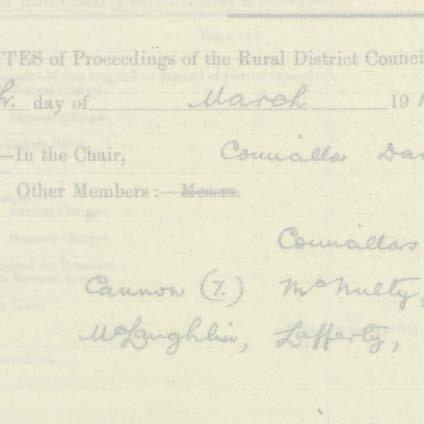 TES of Proceedings of the Rural District Counci
h. day of March 191
—In the Chair, Councillor Da
Other Members :— Messrs.
Councillors
Cannon (7.) McNulty,
McLaughlin, Lafferty,